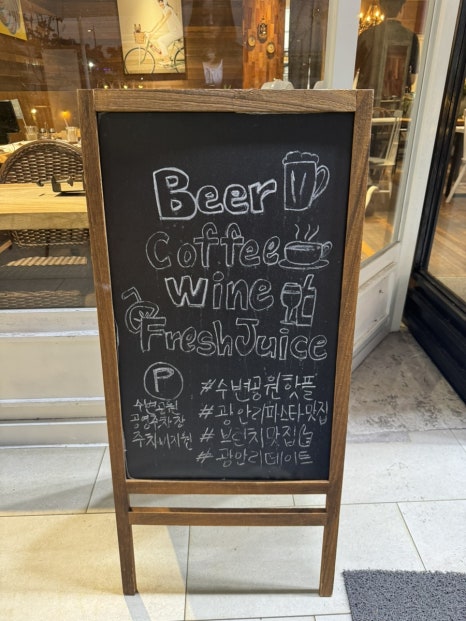 Beer
Coffee
Wine
Fresh Juice
P
수변공원
공영주차장
주차비지원
#수변공원핫플
#광안리파스타맛집
#브런치맛집
#광안리데이트